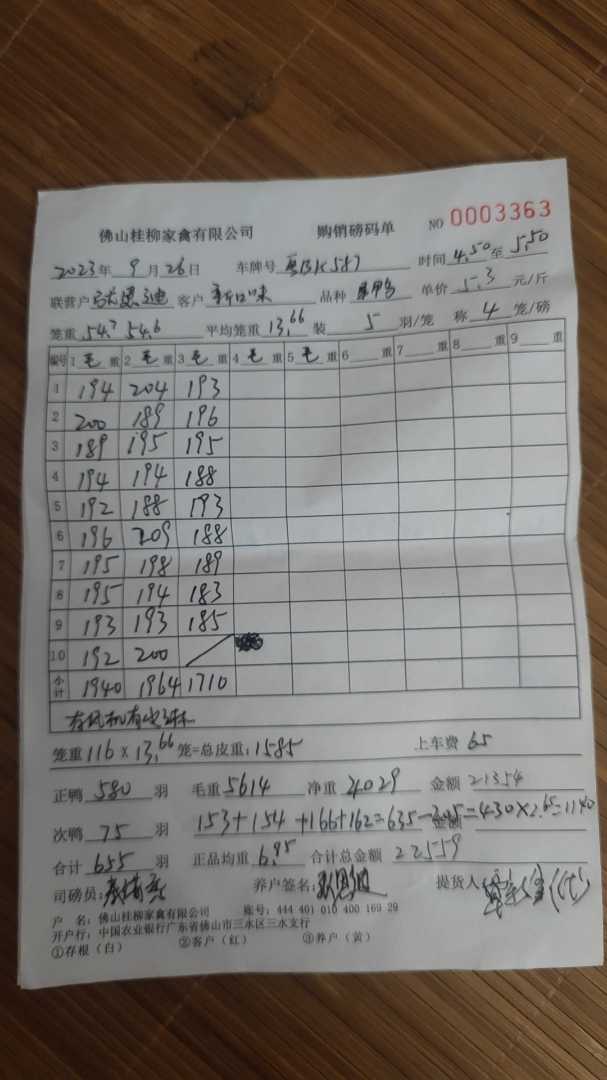 佛山桂柳家禽有限公司 购销磅码单 NO 0003363
2023年 9月26日 车牌号 粤BK587 时间 4.50至5.50
联营户 客户 新口味 品种 单价 5.3 元/斤
笼重 54.7 54.6 平均笼重 13.66 装 5 羽/笼 称 4 笼/磅
编号 1毛重 2毛重 3毛重 4毛重 5毛重 6 重 7 重 8 重 9 重
1 194 204 193
2 200 189 196
3 189 195 195
4 194 194 188
5 192 188 193
6 196 209 188
7 195 198 189
8 195 194 183
9 193 193 185
10 192 200
小计 1940 1964 1710
笼重 116 × 13.66 笼=总皮重: 1585 上车费 65
正鸭 580 羽 毛重 5614 净重 4029 金额 21354
次鸭 75 羽 153+154+166+162=635 =430×2.65=1140 金额
合计 655 羽 正品均重 6.95 合计总金额 22559
司磅员: 养户签名: 提货人:
户 名: 佛山桂柳家禽有限公司 账号: 444 401 010 400 169 29
开户行: 中国农业银行广东省佛山市三水区三水支行
①存根(白) ②客户(红) ③养户(黄)